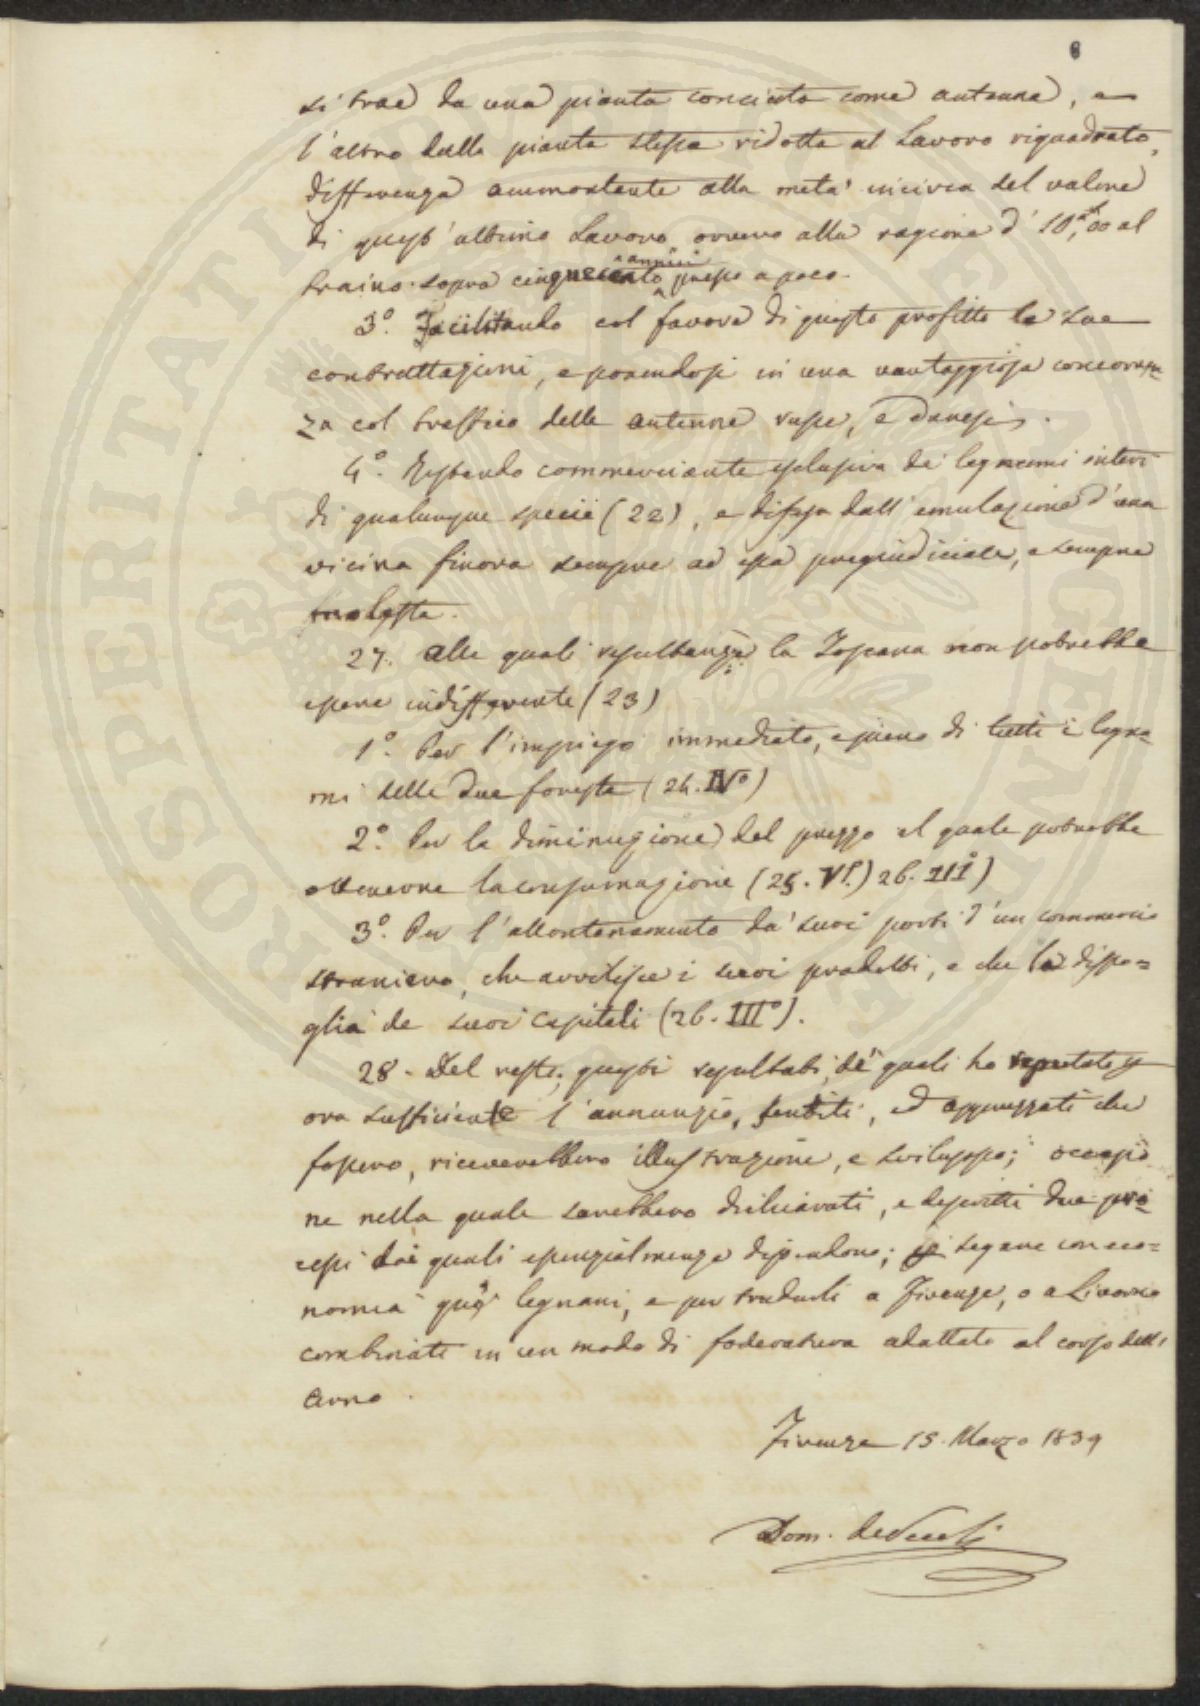 8
si trae da una pianta conciata come antenna, e
l'altro dalla pianta stessa ridotta al Lavoro riquadrato,
differenza ammontante alla metà incirca del valore
di quest'ultimo Lavoro, ovvero alla ragione d' 10,,00 al
traino sopra cinquecento annui presso a poco.
3º. Facilitando col favore di questo profitto le sue
contrattazioni, e ponendosi in una vantaggiosa concorren=
za col traffico delle antenne russe, e danesi.
4º. Restando commerciante esclusiva de' legnami interi
di qualunque specie (22), e difesa dall' emulazione d'una
vicina finora sempre ad essa pregiudiciale, e sempre
molesta.
27. Alle quali resultanze la Toscana non potrebbe
essere indifferente (23)
1º. Per l'impiego immediato, e pieno di tutti i legna=
mi delle due foreste (24. IVº)
2º. Per la diminuzione del prezzo al quale potrebbe
ottenerne la consumazione (25. Vº.) 26. IIIº)
3º. Per l'allontanamento da' suoi porti d'un commercio
straniero, che avvilisce i suoi prodotti, e che la dispo=
glia de suoi capitali (26. IIIº).
28. Del resto, questi resultati, de' quali ho reputato per
ora sufficiente l'annunzio, sentiti, ed apprezzati che
fossero, riceverebbero illustrazione, e sviluppo; occasio
ne nella quale sarebbero dichiarati, e descritti due pro=
cessi dai quali essenzialmente dipendono; segare con eco=
nomia legnami, e per tradurli a Firenze, o a Livorno
combinati in un modo di foderatura adattato al corso dell'
Arno.
Firenze 15. Marzo 1839
Dom.